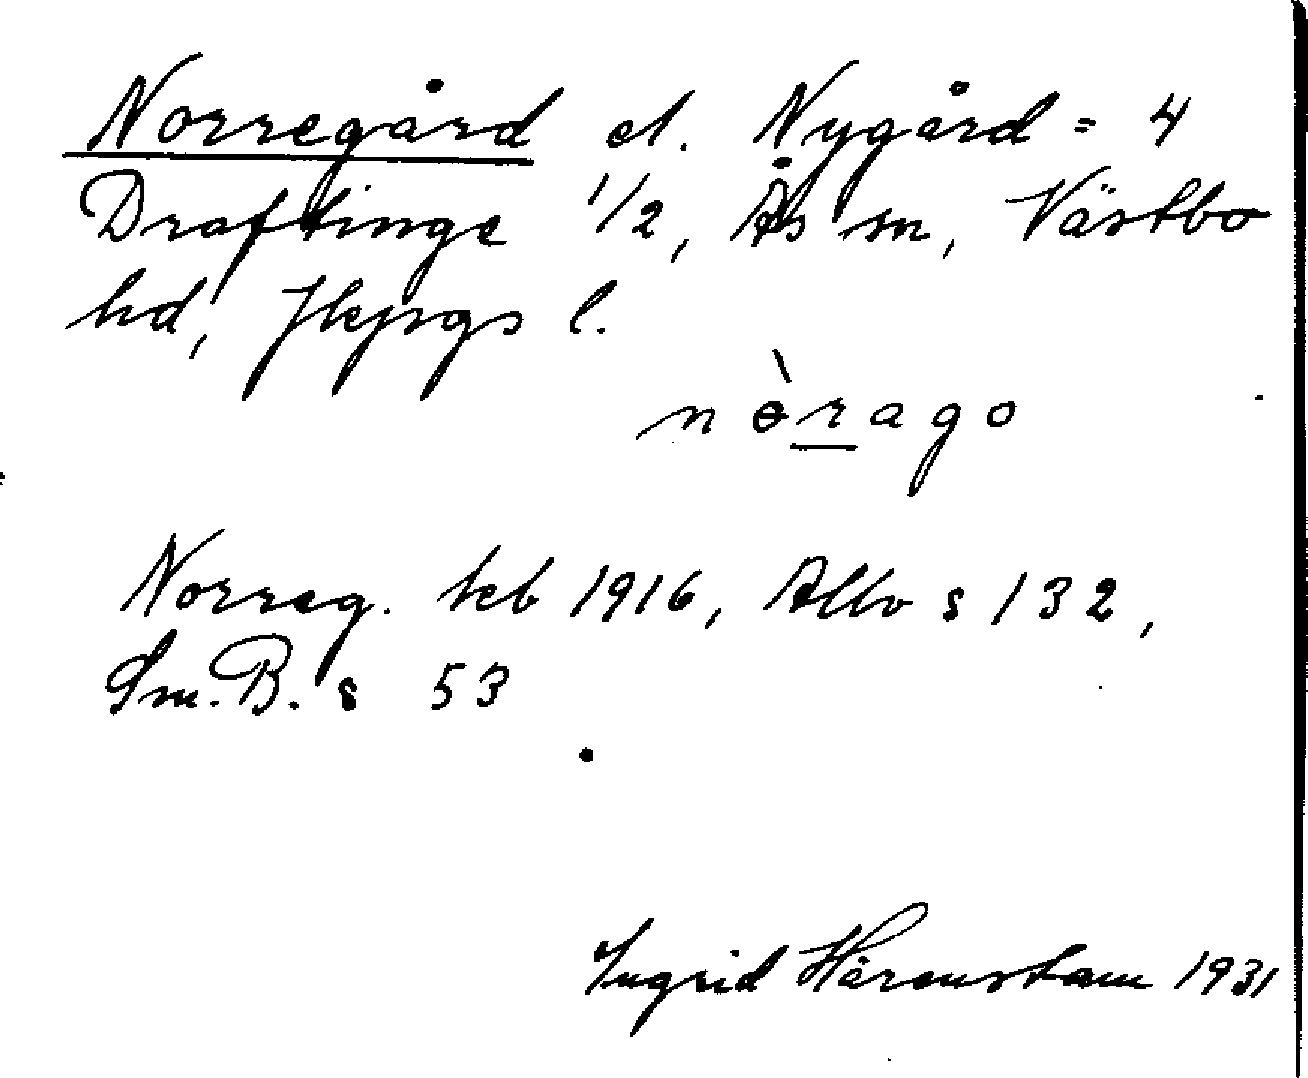 Norregård el. Nygård = 4
Draftinge 1/2, Ås sn, Västbo
hd, Jkpgs l.
nòrago
Norreg. teb 1916, Allv s 132,
Sm. B. s 53
Ingrid Härenstam 1931